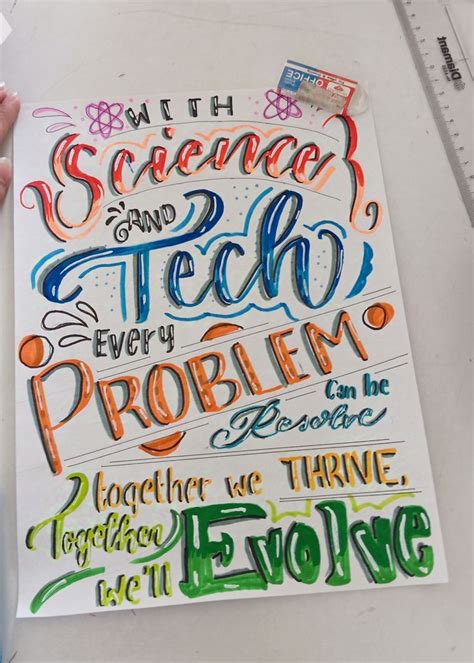 WITH
Science
AND
Tech
EVERY
PROBLEM
Can be
Resolve
together we THRIVE,
Together
we'll Evolve
OFFICE
Diamant